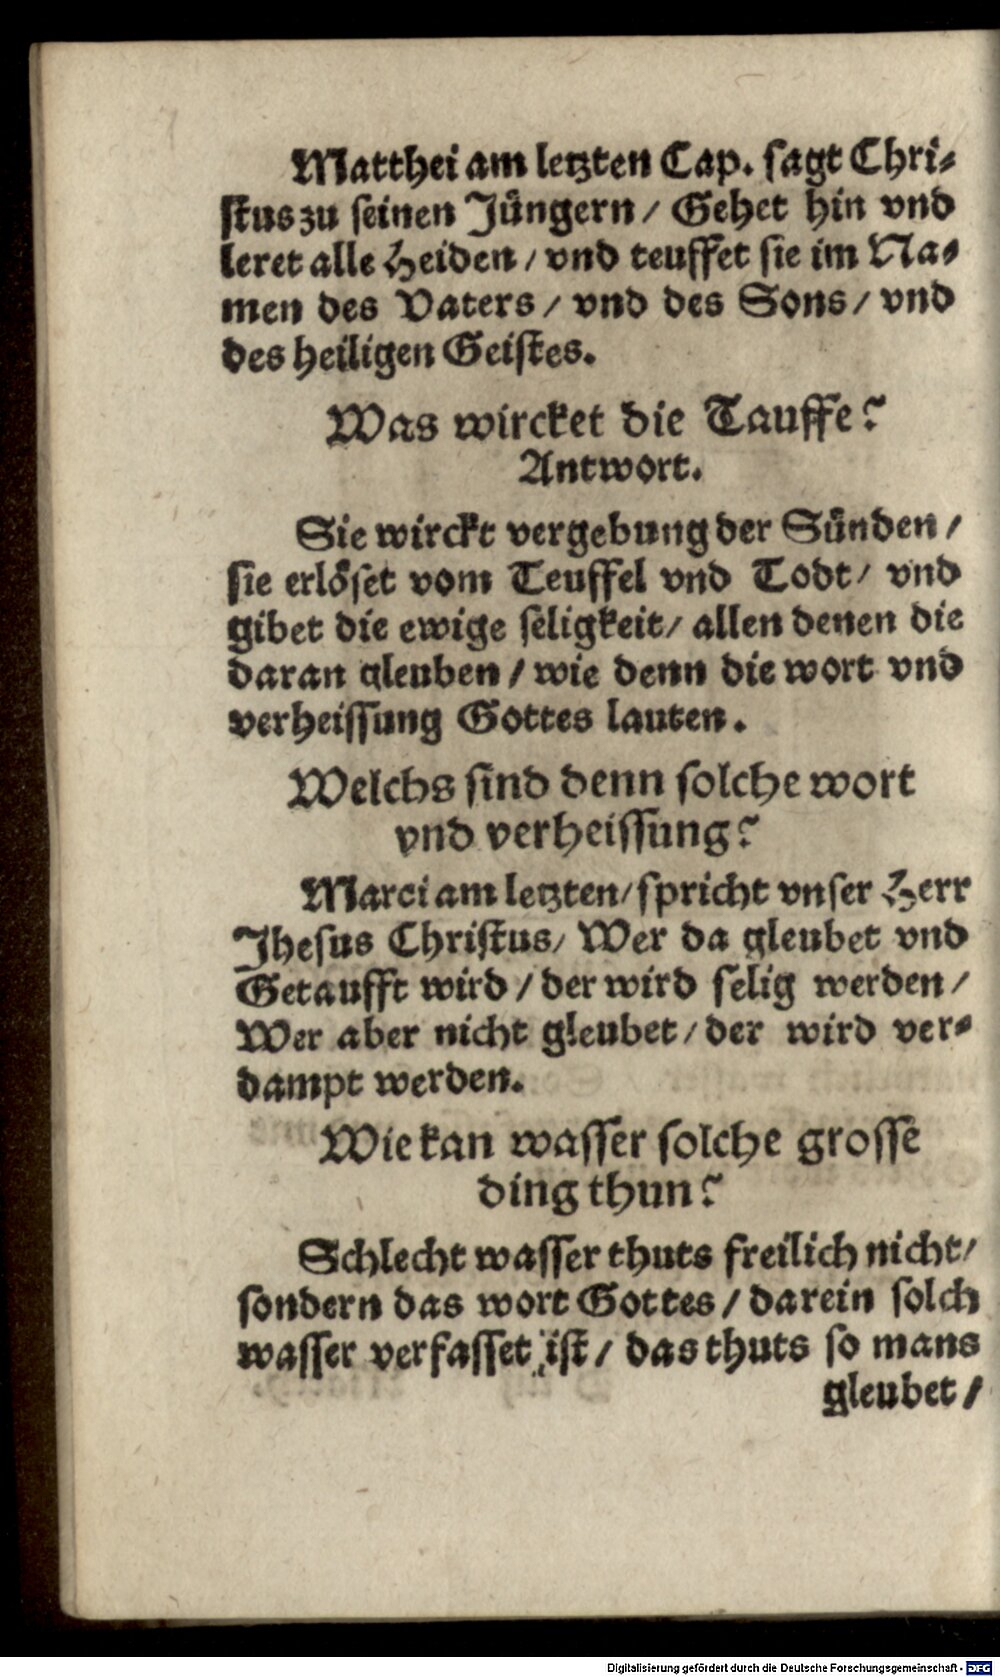 Matthei am letzten Cap. sagt Chri⸗
stus zu seinen Jüngern / Gehet hin vnd
leret alle Heiden / vnd teuffet sie im Na⸗
men des Vaters / vnd des Sons / vnd
des heiligen Geistes.
Was wircket die Tauffe?
Antwort.
Sie wirckt vergebung der Sünden /
sie erlöset vom Teuffel vnd Todt / vnd
gibet die ewige seligkeit / allen denen die
daran gleuben / wie denn die wort vnd
verheissung Gottes lauten.
Welchs sind denn solche wort
vnd verheissung?
Marci am letzten / spricht vnser Herr
Jhesus Christus / Wer da gleubet vnd
Getaufft wird / der wird selig werden /
Wer aber nicht gleubet / der wird ver⸗
dampt werden.
Wie kan wasser solche grosse
ding thun?
Schlecht wasser thuts freilich nicht /
sondern das wort Gottes / darein solch
wasser verfasset ist / das thuts so mans
gleubet /
Digitalisierung gefördert durch die Deutsche Forschungsgemeinschaft - DFG